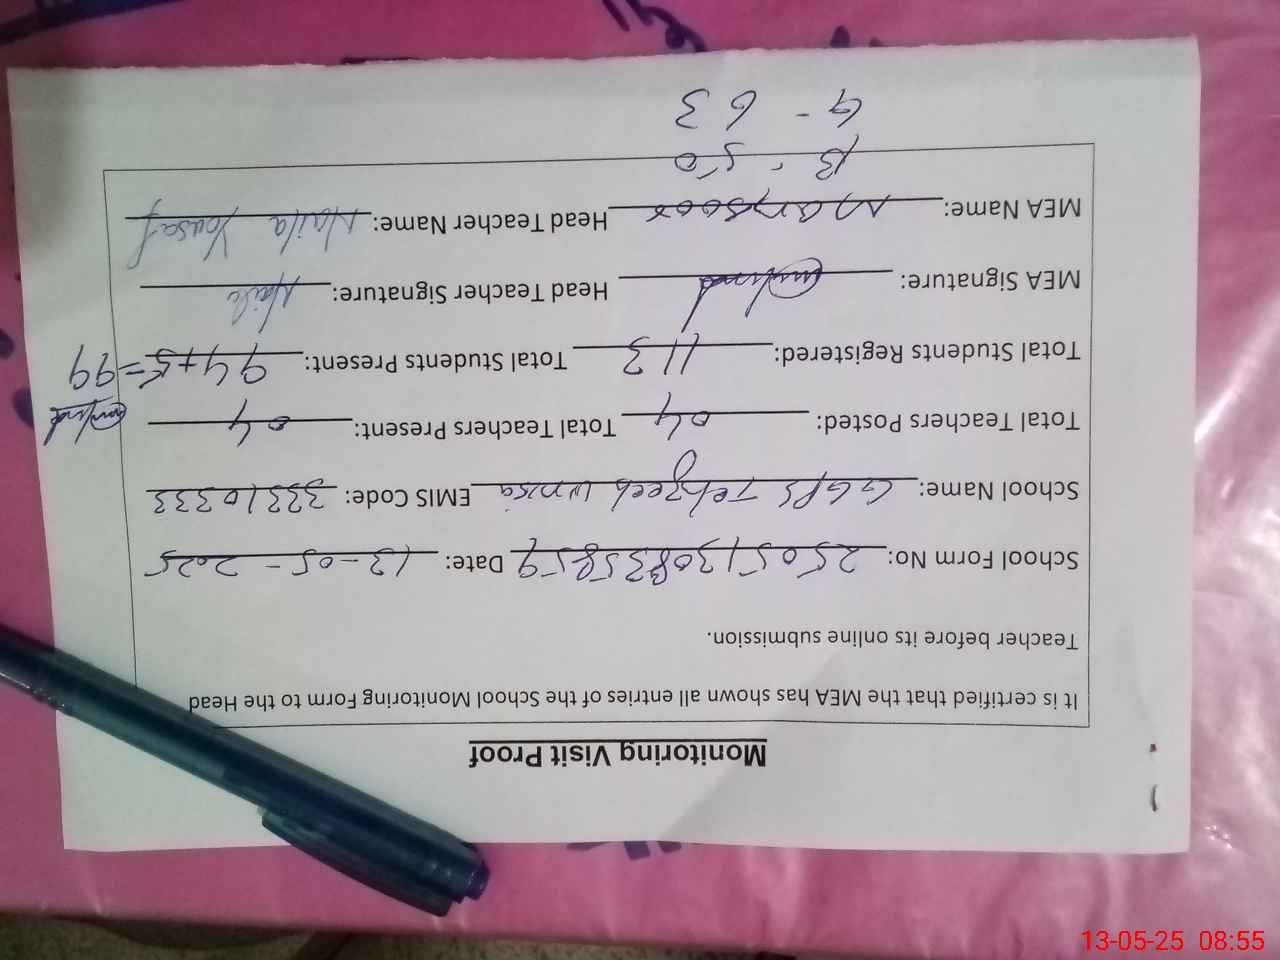 Monitoring Visit Proof
It is certified that the MEA has shown all entries of the School Monitoring Form to the Head
Teacher before its online submission.
School Form No: 2505130835859 Date: 13-05-2025
School Name: GGPS Tehzeeb unnisa EMIS Code: 33310333
Total Teachers Posted: 04 Total Teachers Present: 04
Total Students Registered: 113 Total Students Present: 94+5=99
MEA Signature: Head Teacher Signature: Naila
MEA Name: Manzoor Head Teacher Name: Naila Yousaf
B - 50
G - 63
13-05-25 08:55